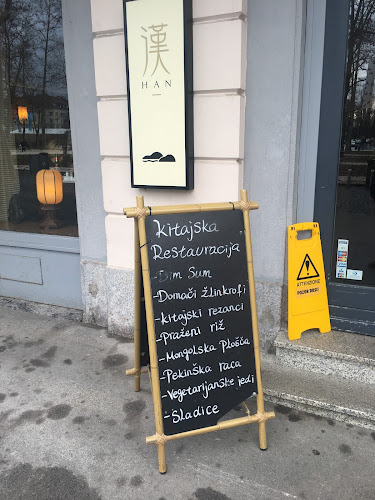 漢
HAN
Kitajska
Restavracija
-Dim Sum
-Domači žlinkrofi
-kitajski rezanci
-Praženi riž
-Mongolska Plošča
-Pekinška raca
-Vegetarijanske jedi
-Sladice
ATTENZIONE